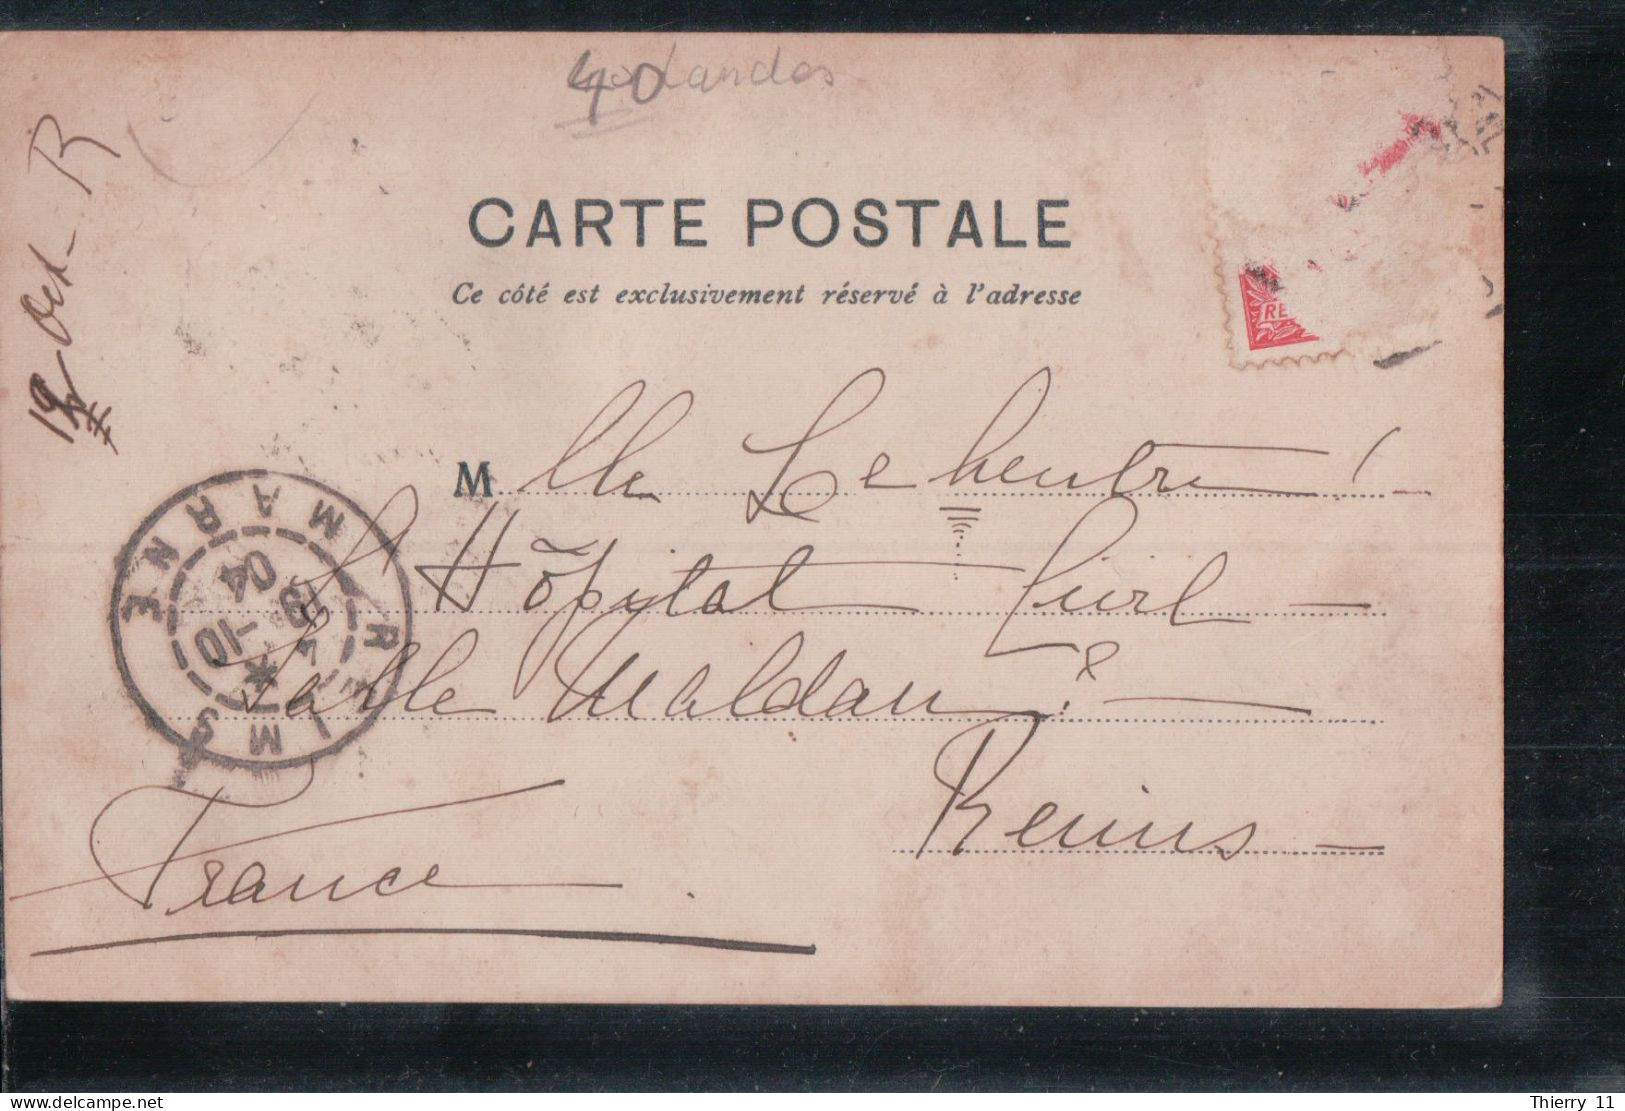 40 Landes
19 Oct - R
CARTE POSTALE
Ce côté est exclusivement réservé à l'adresse
RE
Mlle Lehentre !
Hôpital Civil
Salle Maldan
Reims
France
REIMS MARNE
4
19 -10
04
delcampe.net
Thierry 11